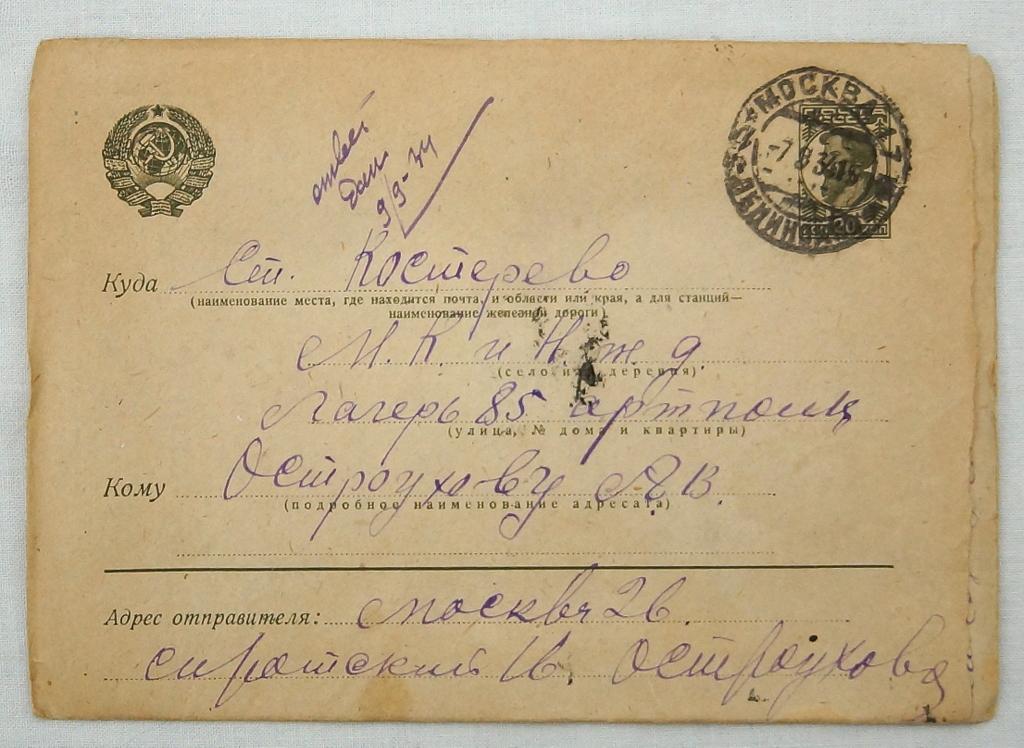 МОСКВА
ответ
дан
9/9-34
20
Куда Ст. Костерево
(наименование места, где находится почта, и области или края, а для станций—
наименование железной дороги)
М. К и Н. ж д
(село или деревня)
Лагерь 85 артполк
(улица, № дома и квартиры)
Кому Остроухову А. В.
(подробное наименование адресата)
Адрес отправителя: Москва 26.
Сиротский 16. Остроухова